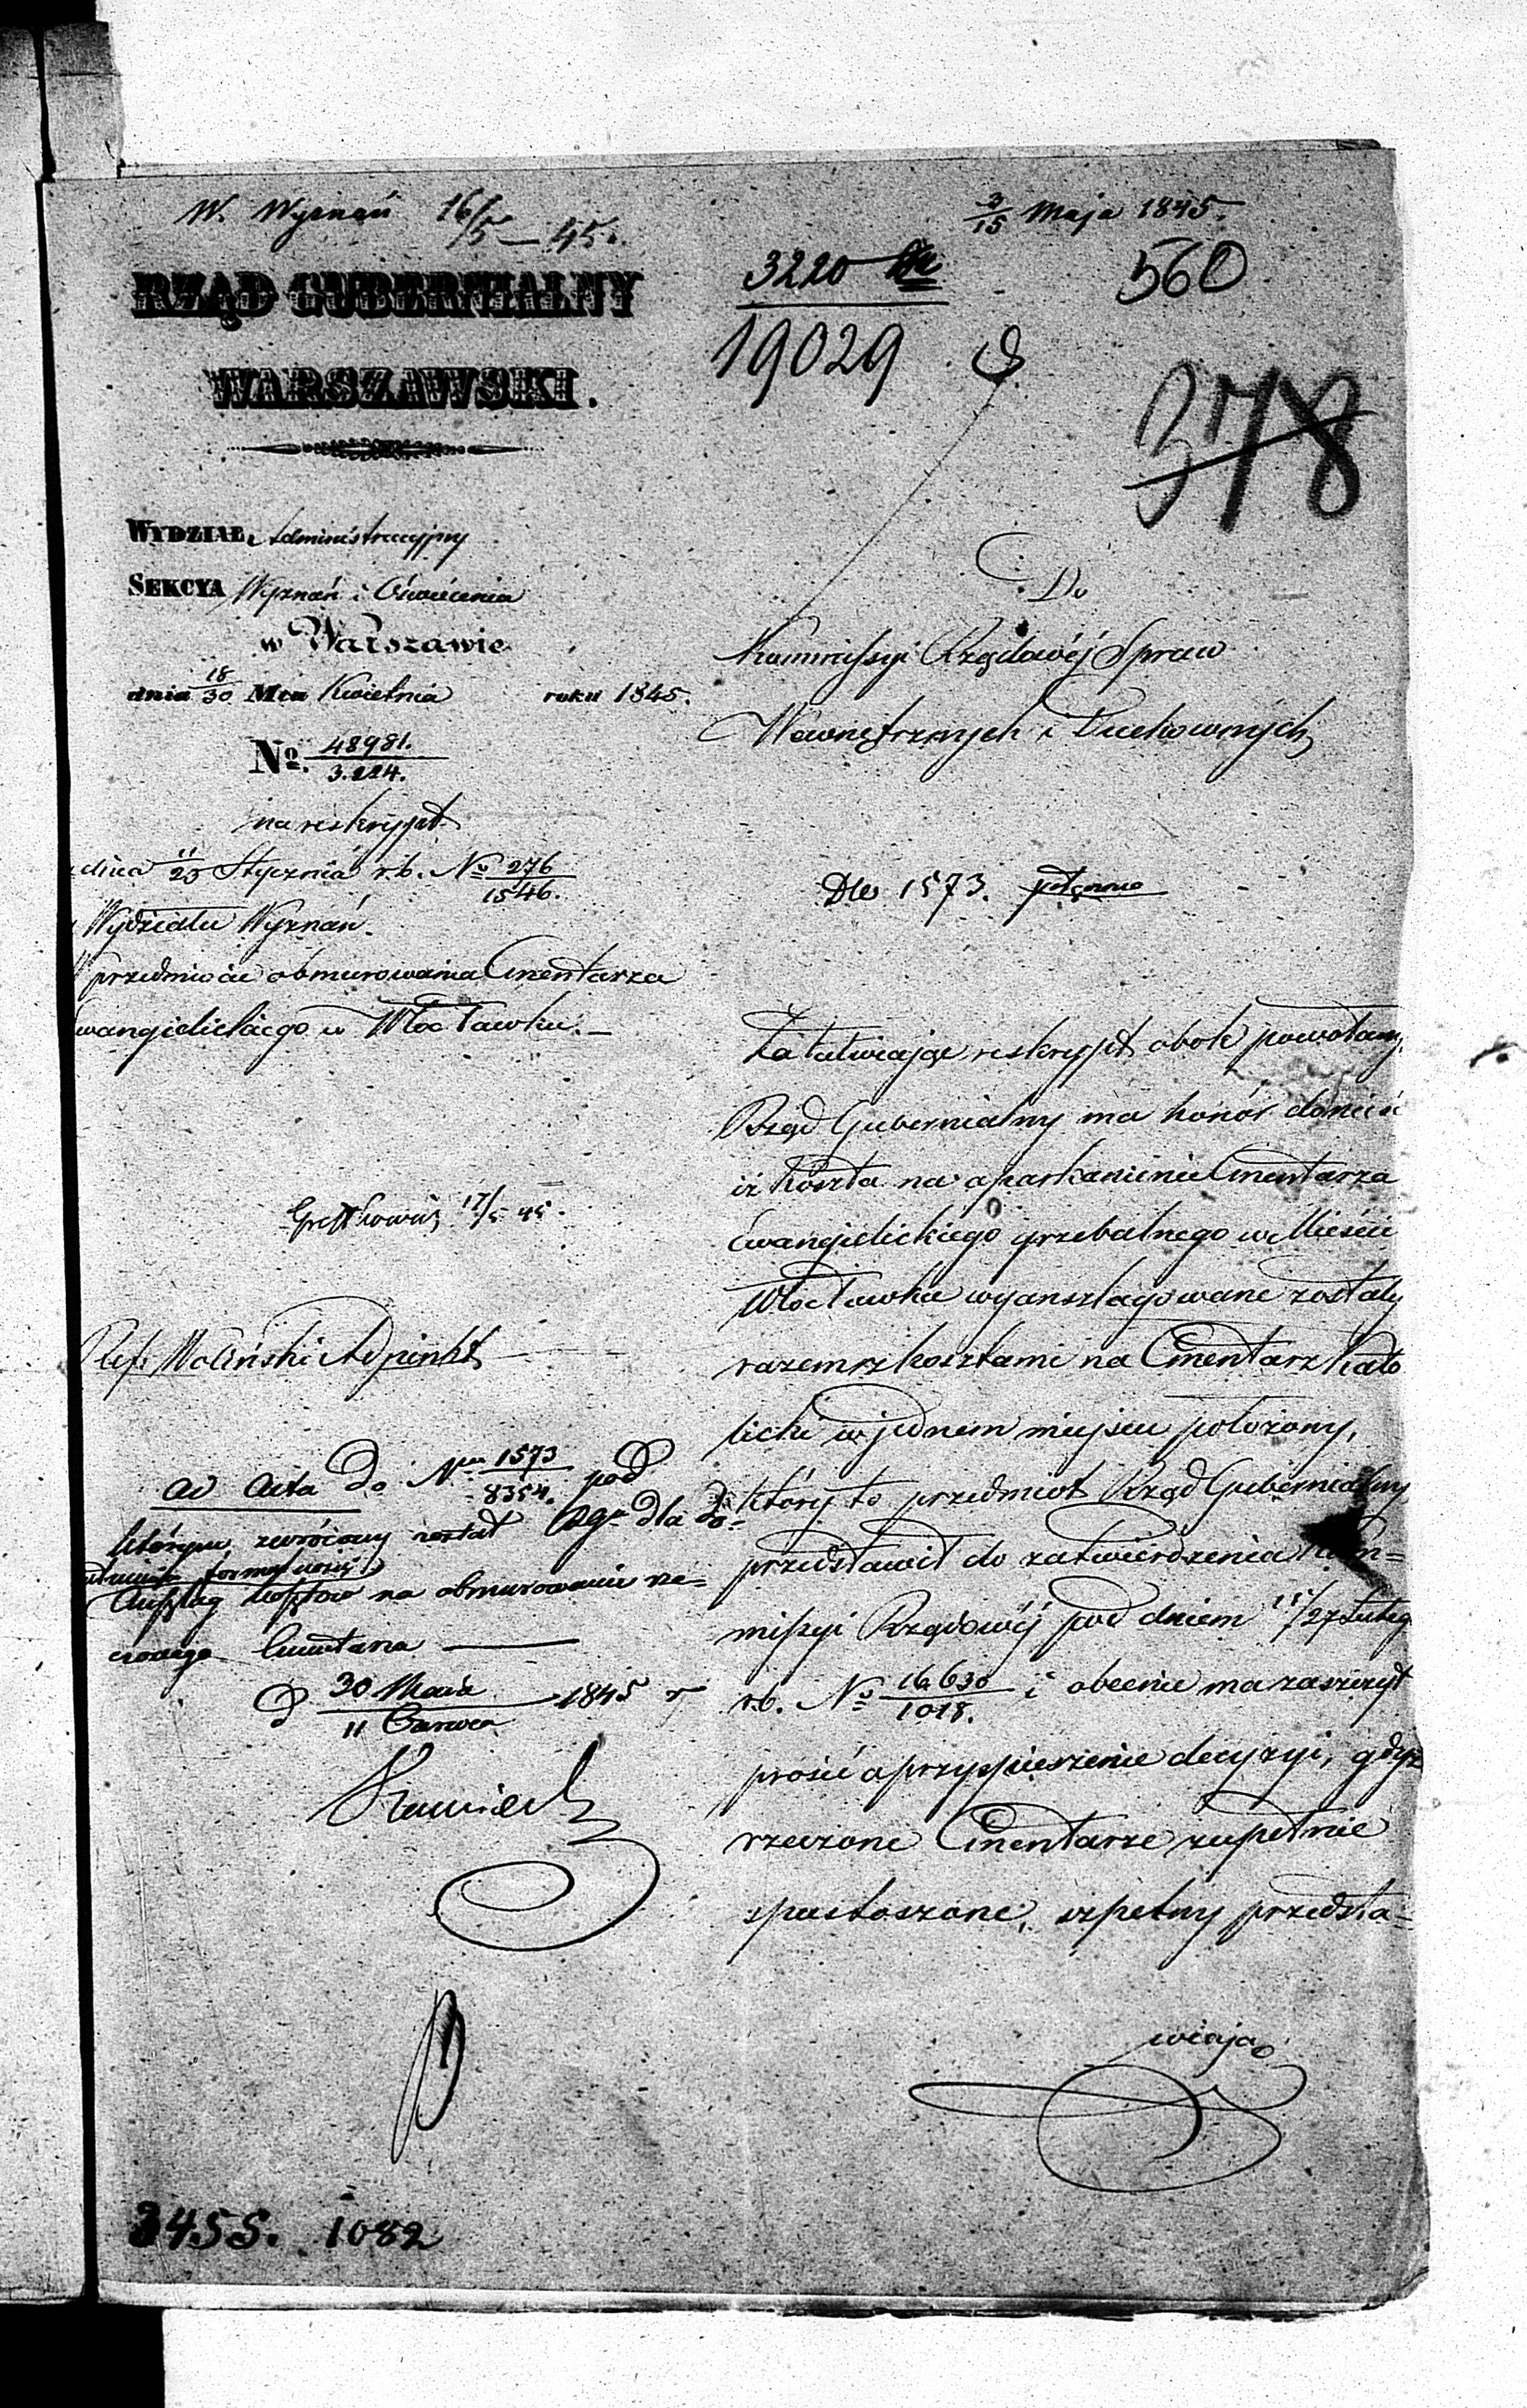 W. Wyznań 16/5 — 45.
3/15 Maja 1845.
3220
19029
560
378
RZĄD GUBERNIALNY
WARSZAWSKI.
WYDZIAŁ Administracyjny
SEKCYA Wyznań i Oświecenia
w Warszawie
dnia 18/30 Mca Kwietnia roku 1845.
No. 48981./3.224.
na reskrypt
z dnia 11/23 Stycznia r.b. No 276/1546.
Wydziału Wyznań.
W przedmiocie obmurowania Cmentarza
Ewangielickiego w Włocławku.—
17/5 45.
Ref. Woliński Adjunkt
ad acta do Nru 1573/8354. pod
którym zwrócony został dla do=
Anszlag kosztów na obmurowanie rze=
czonego Cmentarza —
d 30 Maia/11 Czerwca 1845 r
3455. 1082
Do
Kommissyi Rządowéj Spraw
Wewnętrznych i Duchownych
Dto 1573.
Załatwiając reskrypt obok powołany,
Rząd Gubernialny ma honór donieść
iż koszta na oparkanienie Cmentarza
Ewangielickiego grzebalnego w Mieście
Włocławku wyanszlagowane zostały
razem z kosztami na Cmentarz Kato
licki w jednem miejscu położony,
który to przedmiot Rząd Gubernialny
przedstawił do zatwierdzenia Kom=
missyi Rządowéj pod dniem 15/27 Lutego
r.b. No 16,630/1018. i obecnie ma zaszczyt
prosić o przyspieszenie decyzyi, gdyż
rzeczone Cmentarze zupełnie
spustoszone, szpetny przedsta=
wiają